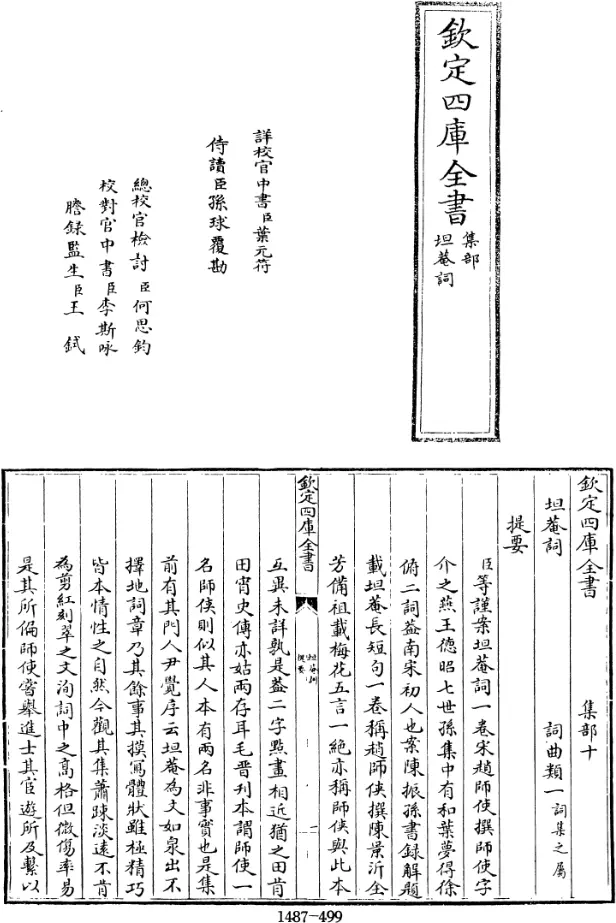 欽定四庫全書
集部
坦菴詞
詳校官中書臣葉元符
侍讀臣孫球覆勘
總校官檢討臣何思鈞
校對官中書臣李斯咏
謄錄監生臣王鉽
欽定四庫全書 集部十
坦菴詞 詞曲類一詞集之屬
提要
臣等謹案坦菴詞一卷宋趙師使撰師使字
介之燕王德昭七世孫集中有和葉夢得徐
俯二詞葢南宋初人也案陳振孫書錄解題
載坦菴長短句一卷稱趙師俠撰陳景沂全
芳備祖載梅花五言一絶亦稱師俠與此本
欽定四庫全書
坦菴詞
提要
一
互異未詳孰是葢二字點畫相近猶之田肯
田宵史傳亦姑兩存耳毛晉刊本謂師使一
名師俠則似其人本有兩名非事實也是集
前有其門人尹覺序云坦菴為文如泉出不
擇地詞章乃其餘事其摸寫體狀雖極精巧
皆本情性之自然今觀其集蕭疎淡遠不肯
為剪紅刻翠之文洵詞中之高格但微傷率易
是其所偏師使嘗舉進士其宦遊所及繫以
1487-499